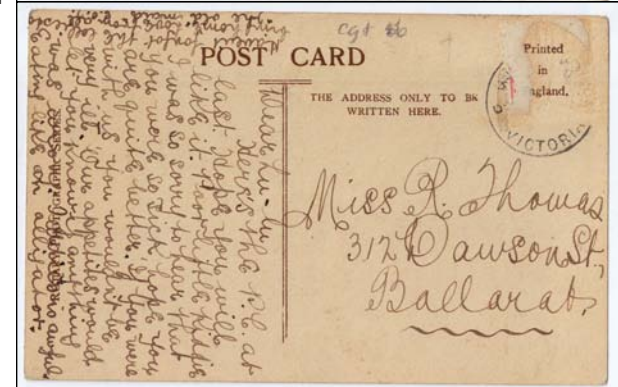 Cgt
POST CARD
Printed
in
England.
THE ADDRESS ONLY TO BE
WRITTEN HERE.
VICTORIA
Miss R. Thomas
312 Dawson St,
Ballarat,
Dear Lu-Lu
Here's the P.C. at
last. Hope you will
like it. Poor little kiddie
I was so sorry to hear that
you were so sick. Hope you
are quite better. If you were
with us you wouldn't be
very ill. Our appetites would
let you know if anything
was is awful.
Eating like an alligator.